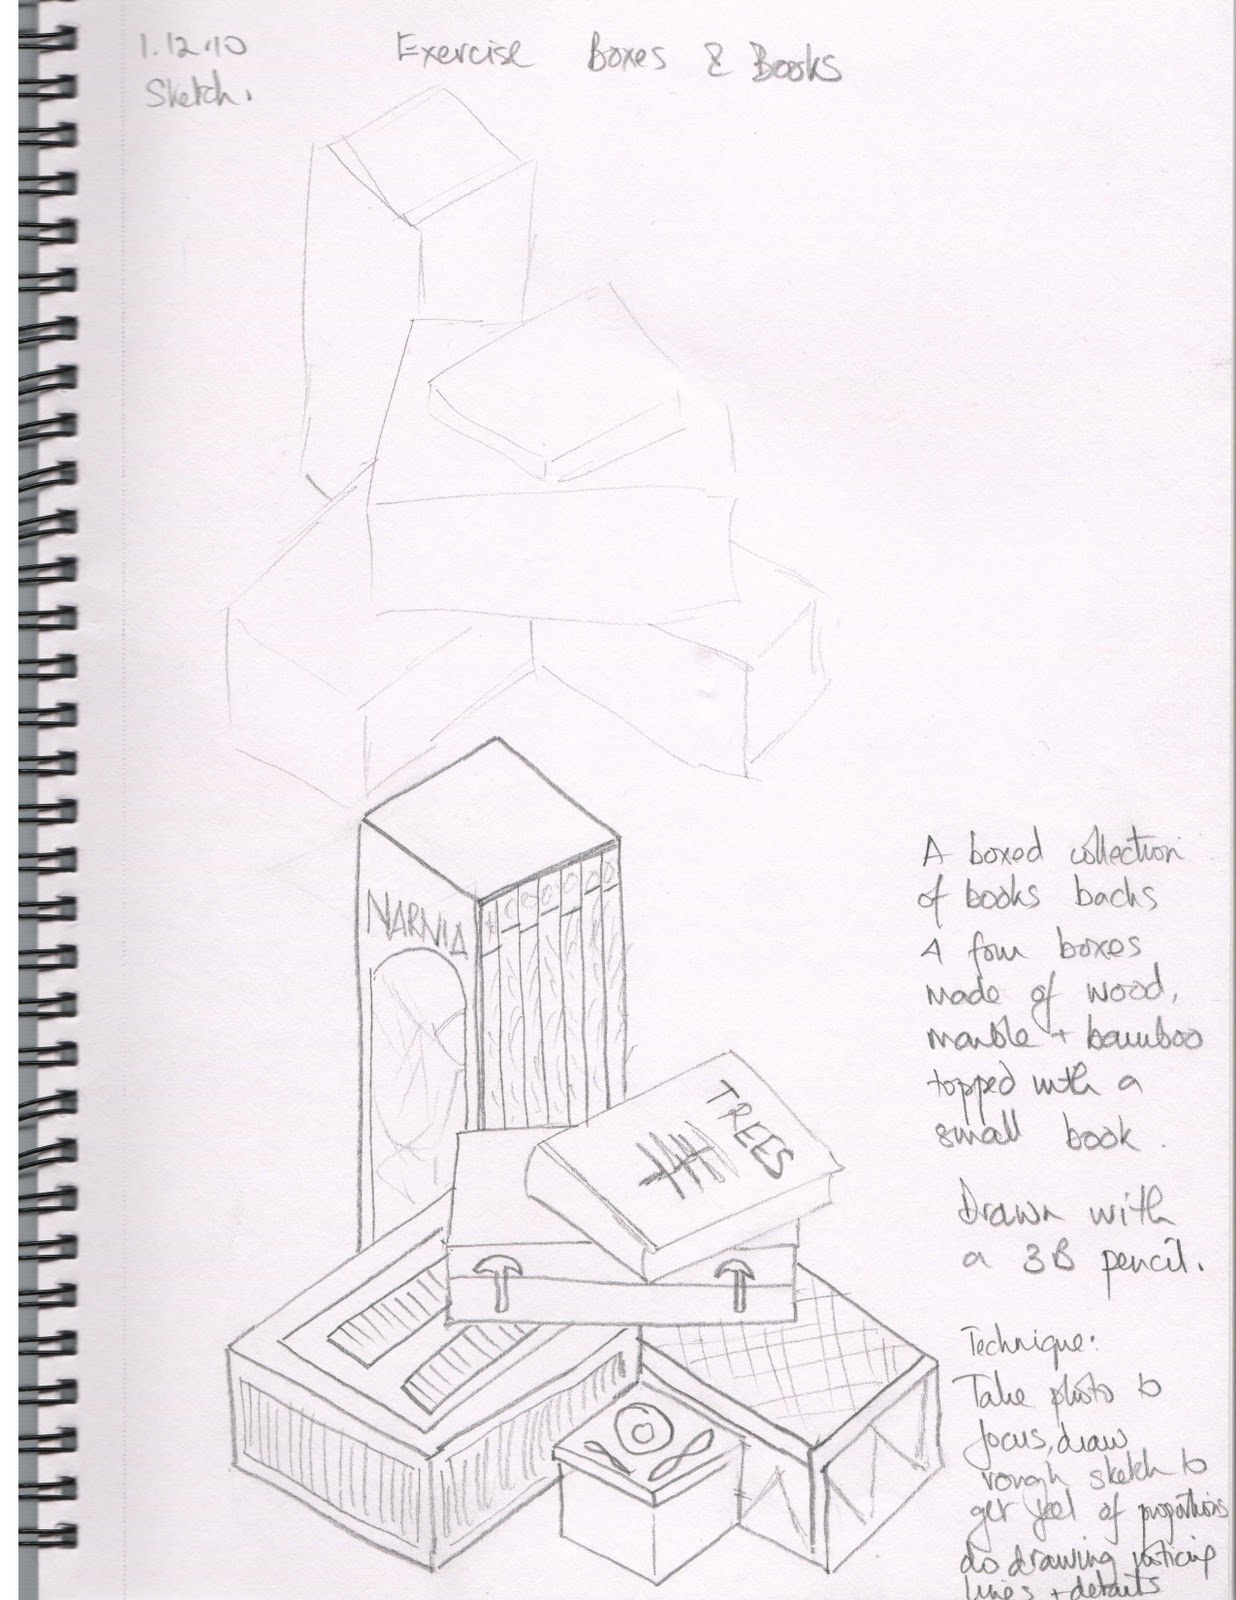 1.12.10
Sketch.
Exercise Boxes & Books
NARNIA
TREES
A boxed collection
of books backs
4 four boxes
made of wood,
marble + bamboo
topped with a
small book.
Drawn with
a 3B pencil.
Technique:
Take photo to
focus, draw
rough sketch to
get feel of proportions
do drawing noticing
lines + details